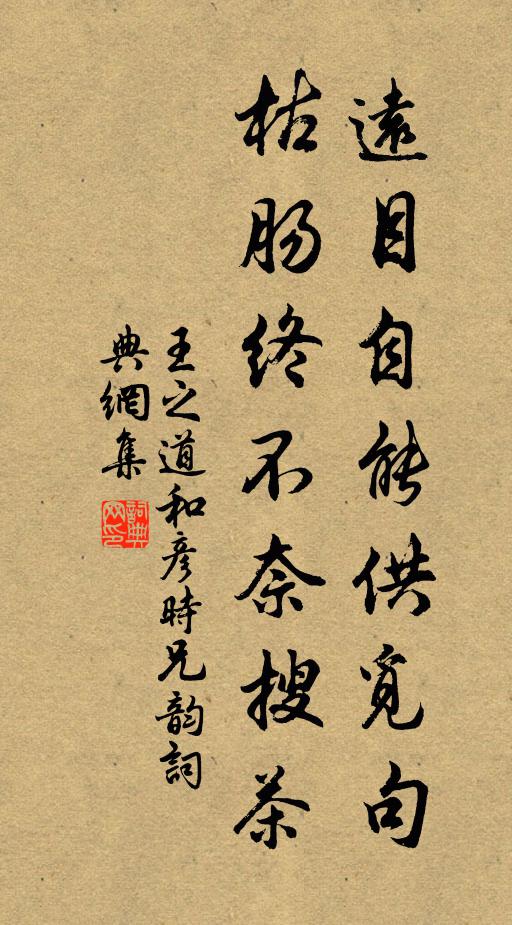 遠目自能供覓句
枯腸終不奈搜茶
王之道和彥時兄韵詞
典網集
詞典网印